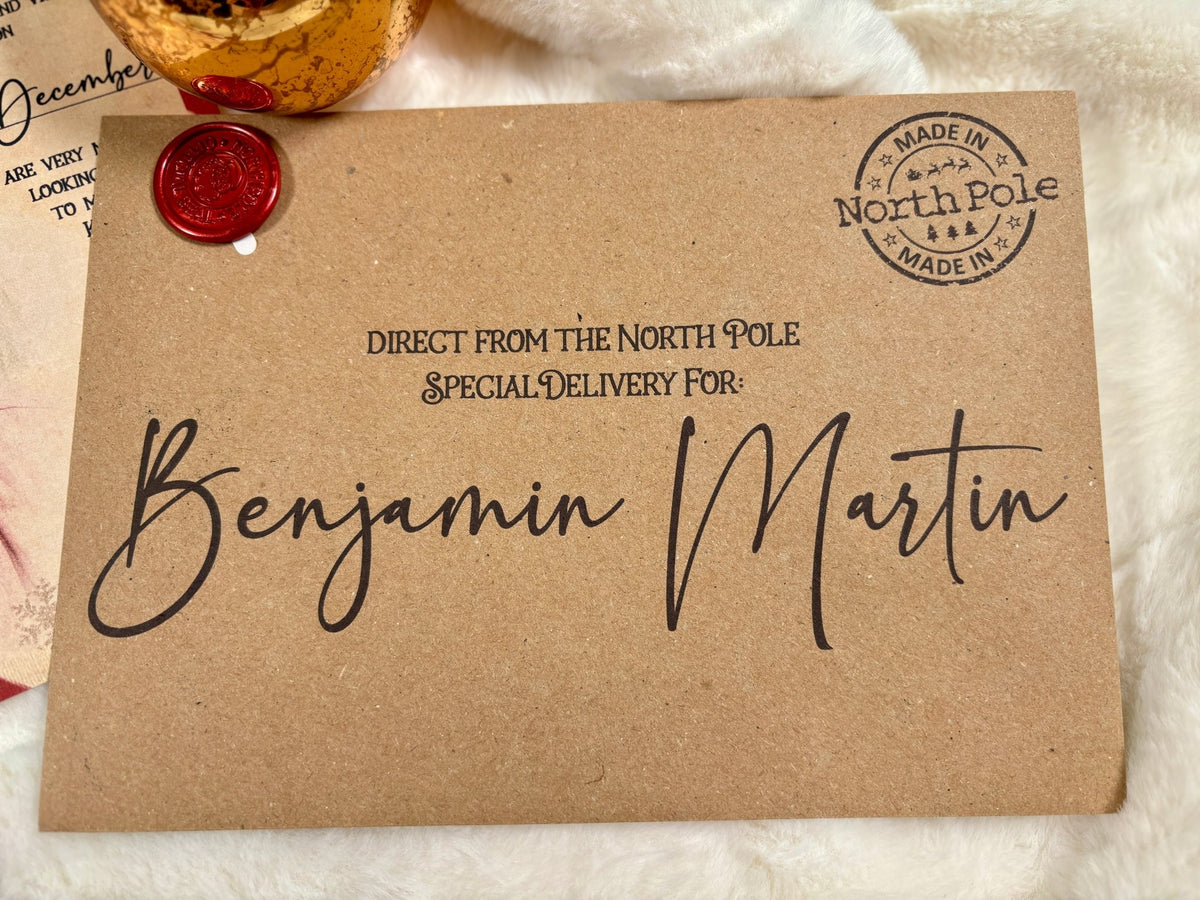 December
ARE VERY
LOOKING
TO
MADE IN
North Pole
MADE IN
DIRECT FROM THE NORTH POLE
SPECIAL DELIVERY FOR:
Benjamin Martin